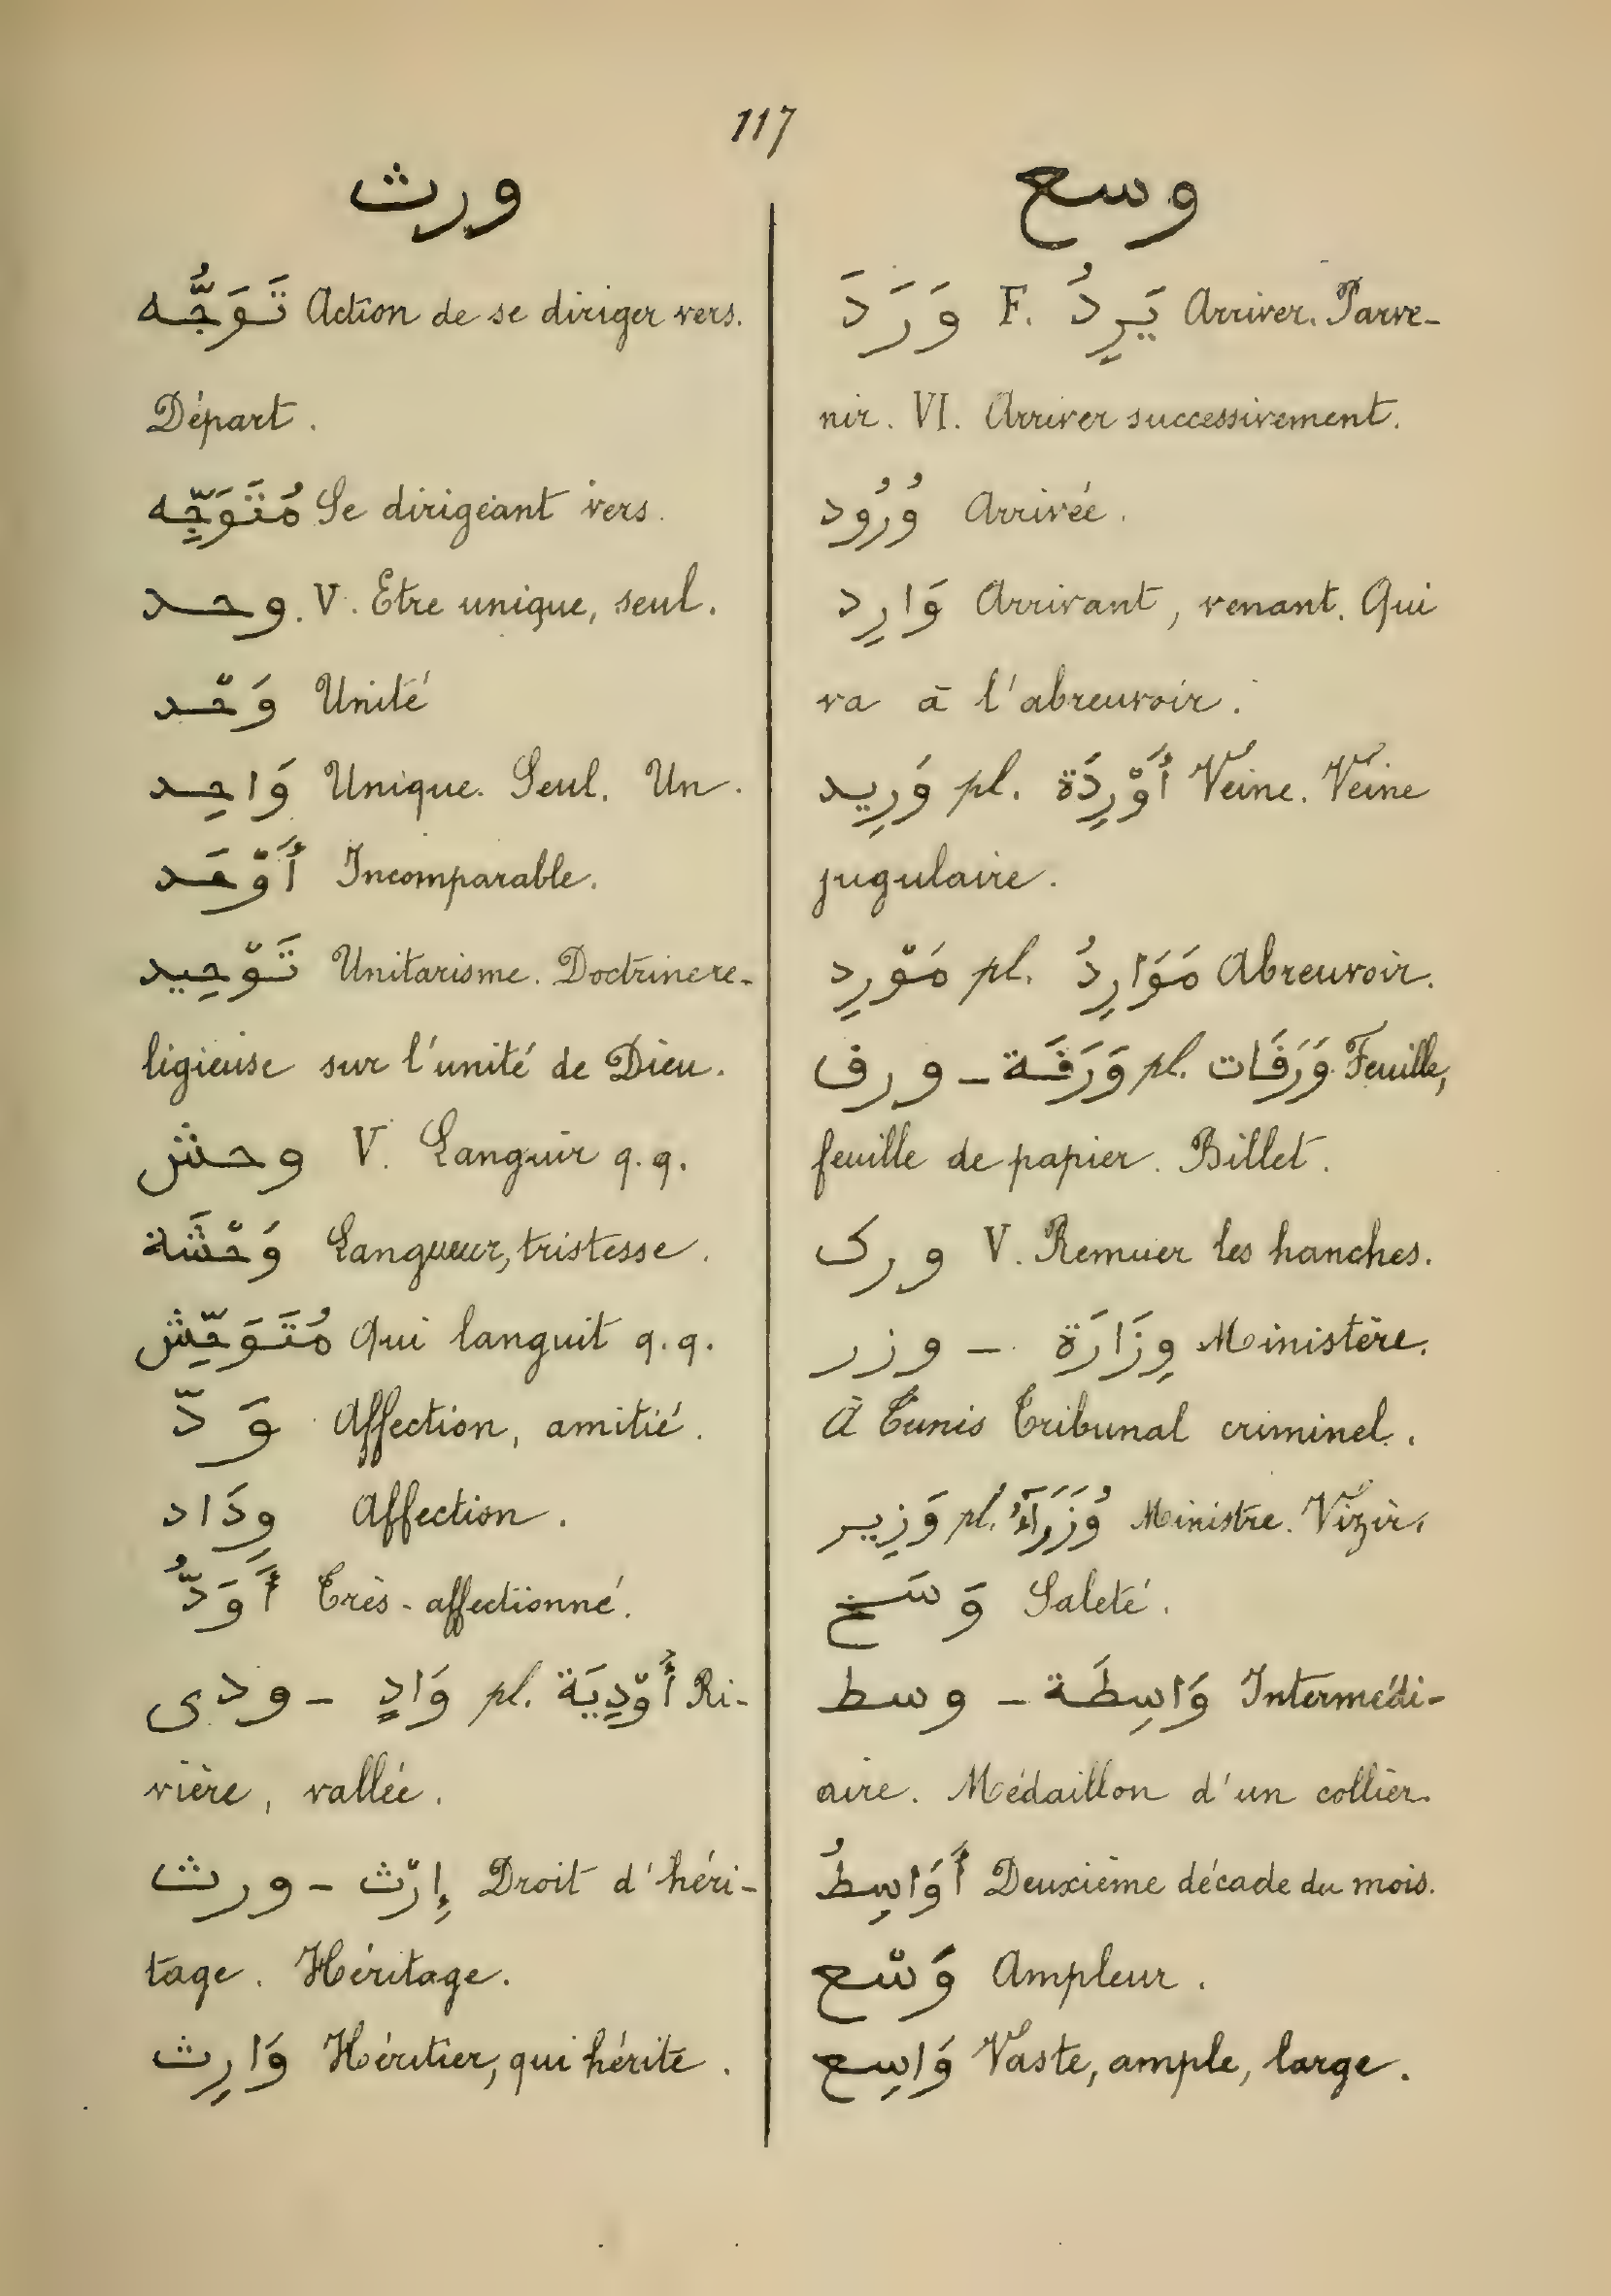 117
ورث
تَوَجُّه Action de se diriger vers.
Départ.
مُتَوَجِّه Se dirigeant vers.
وحد. V. Etre unique, seul.
وَحْد Unité
وَاحِد Unique. Seul. Un.
أَوْحَد Incomparable.
تَوْحِيد Unitarisme. Doctrine re-
ligieuse sur l'unité de Dieu.
وحش V. Languir q.q.
وَحْشَة Langueur, tristesse.
مُتَوَحِّش Qui languit q.q.
وَدّ Affection, amitié.
وِدَاد Affection.
أَوَدُّ Très-affectionné.
ودى - وَادٍ pl. أَوْدِيَة Ri-
vière, vallée.
ورث - إِرْث Droit d'héri-
tage. Héritage.
وَارِث Héritier, qui hérite.
وسع
وَرَدَ F. يَرِدُ Arriver. Parve-
nir. VI. Arriver successivement.
وُرُود Arrivée.
وَارِد Arrivant, venant. Qui
va à l'abreuvoir.
وَرِيد pl. أَوْرِدَة Veine. Veine
jugulaire.
مَوْرِد pl. مَوَارِدُ Abreuvoir.
ورف - وَرَقَة pl. وَرَقَات Feuille,
feuille de papier. Billet.
ورک V. Remuer les hanches.
وزر - وِزَارَة Ministère.
À Tunis Tribunal criminel.
وَزِير pl. وُزَرَآءُ Ministre. Vizir.
وَسَخ Saleté.
وسط - وَاسِطَة Intermédi-
aire. Médaillon d'un collier.
أَوَاسِطُ Deuxième décade du mois.
وَسْع Ampleur.
وَاسِع Vaste, ample, large.